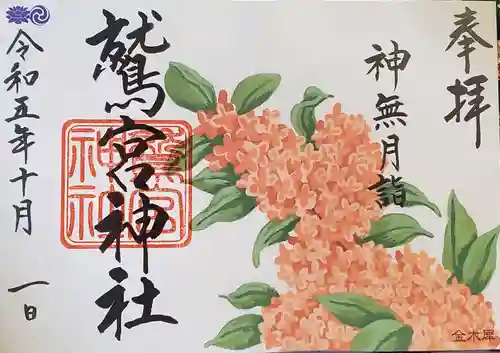 奉拝
神無月詣
鷲宮神社
鷲宮神社
令和五年十月
一日
金木犀